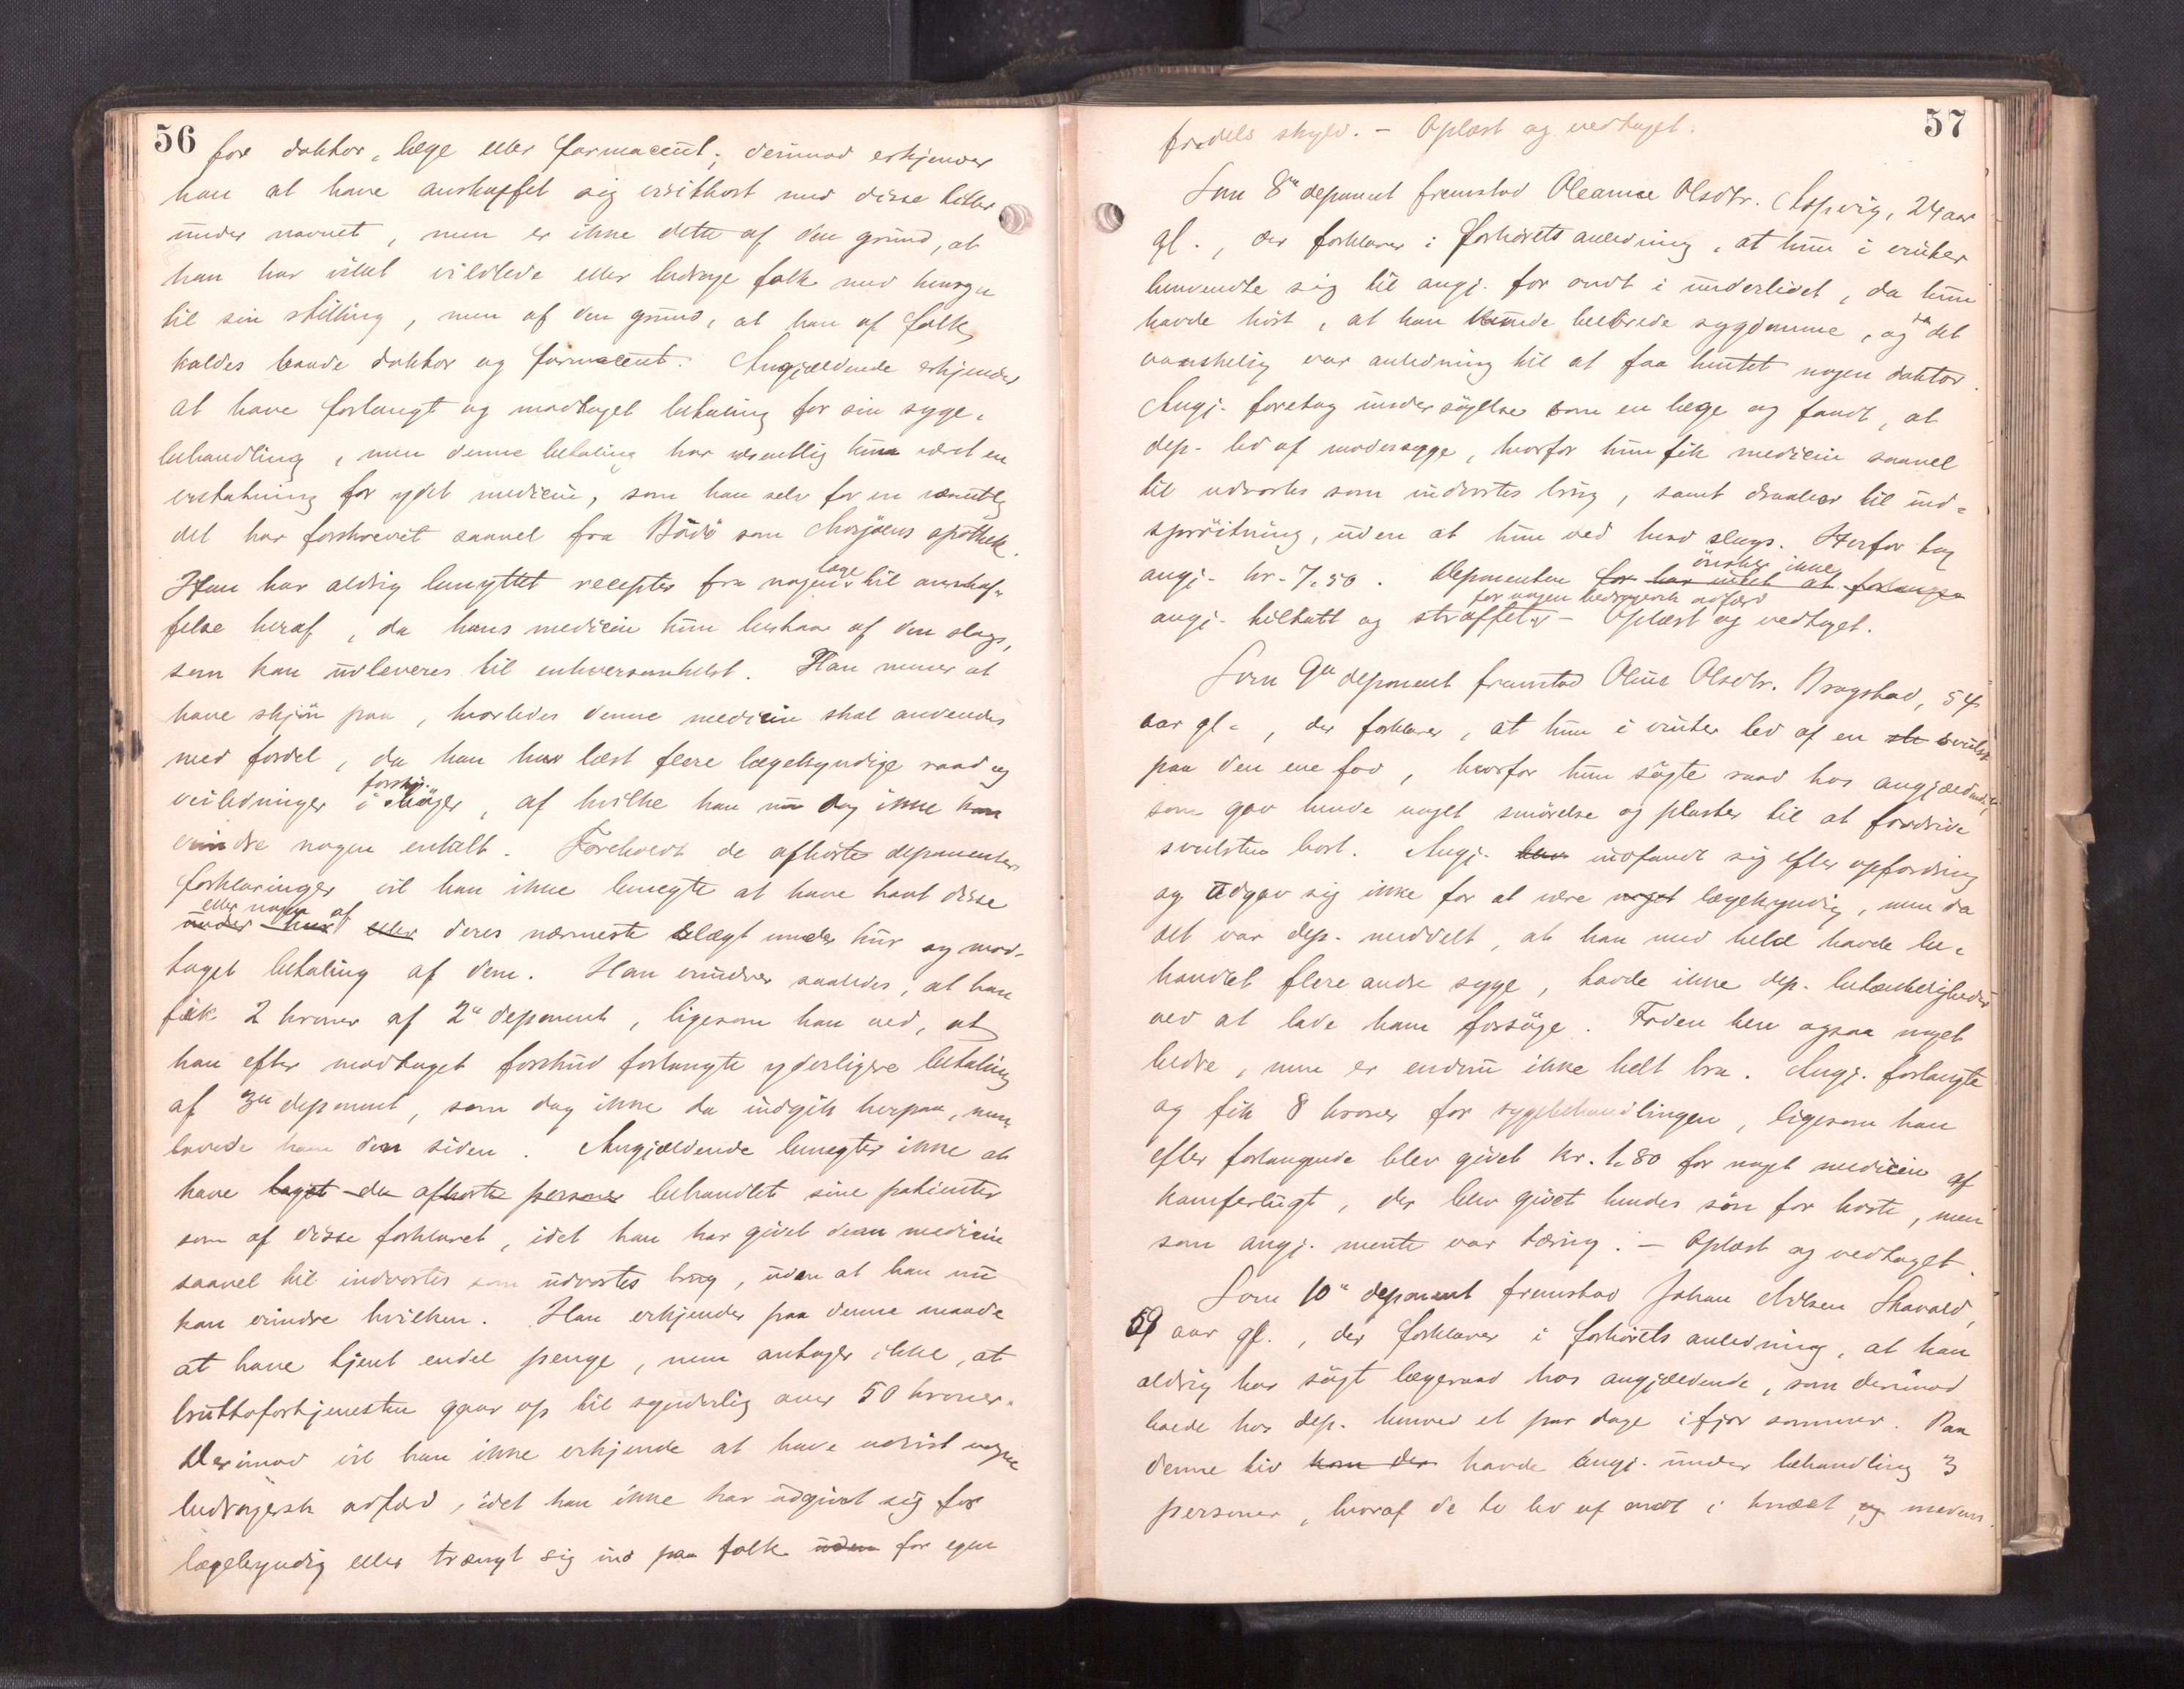 56
for doktor, læge eller farmaceut; derimod erkjender
han at have anskaffet sig visitkort med disse titler
under navnet, men er ikke dette af den grund, at
han har villet vildlede eller bedrage folk med hensyn
til sin stilling, men af den grund, at han af folk
kaldes baade doktor og farmaceut. Angjældende erkjender
at have forlangt og modtaget betaling for sin syge-
behandling, men denne betaling har væsentlig kun været en
erstatning for ydet medicin, som han selv for en væsentlig
del har forskrevet saavel fra Bodö som Mosjöens apothek.
Han har aldrig benyttet recepter fra nogen læge til anskaf-
felse heraf, da hans medicin kun bestaar af den slags,
som kan udleveres til enhversomhelst. Han mener at
have skjön paa, hvorledes denne medicin skal anvendes
med fordel, da han har læst flere lægekyndige raad og
veiledninger i forskj. bøger, af hvilke han nu dog ikke kan
erindre nogen enkelt. Foreholdt de afhörte deponenters
forklaringer vil han ikke benegte at have havt disse
under kur eller eller nogen af deres nærmeste slægt under kur og mod-
taget betaling af dem. Han erindrer saaledes, at han
fik 2 kroner af 2n deponent, ligesom han ved, at
han efter modtaget forskud forlangte yderligere betaling
af 3die deponent, som dog ikke da indgik herpaa, men
lovede ham den siden. Angjældende benegter ikke at
have taget de afhörte personer behandlet sine patienter
som af disse forklaret, idet han har givet dem medicin
saavel til indvortes som udvortes brug, uden at han nu
kan erindre hvilken. Han erkjender paa denne maade
at have tjent endel penge, men antager ikke, at
bruttofortjenesten gaar op til synderlig over 50 kroner.
Derimod vil han ikke erkjende at have udvist nogen
bedragersk adfærd, idet han ikke har udgivet sig for
lægekyndig eller trængt sig ind paa folk uden for egen
57
fordels skyld. – Oplæst og vedtaget.
Som 8de deponent fremstod Oleanna Olsdtr. Aspvig, 24 aar
gl., der forklarer i forhörets anledning, at hun i vinter
henvendte sig til angj. for ondt i underlivet, da hun
havde hört, at han kunde helbrede sygdomme, og da det
vanskelig var anledning til at faa hentet nogen doktor.
Angj. foretog undersögelse som en læge og fandt, at
dep. led af modersyge, hvorfor hun fik medicin saavel
til udvortes som indvortes brug, samt draaber til ind-
spröitning, uden at hun ved hvad slags. Herfor tog
angj. kr. 7,50. Deponenten for har intet at forlange önsker ikke
angj. tiltalt og straffet for nogen bedragersk adfærd – Oplæst og vedtaget.
Som 9de deponent fremstod Oline Olsdtr. Bragstad, 54
aar gl., der forklarer, at hun i vinter led af en sk svulst
paa den ene fod, hvorfor hun sögte raad hos angjældende,
som gav hende noget smörelse og plaster til at fordrive
svulsten bort. Angj. blev indfandt sig efter opfordring
og udgav sig ikke for at være noget lægekyndig, men da
det var dep. meddelt, at han med held havde be-
handlet flere andre syge, havde ikke dep. betænkeligheder
ved at lade ham forsöge. Foden blev ogsaa noget
bedre, men er endnu ikke helt bra. Angj. forlangte
og fik 8 kroner for sygebehandlingen, ligesom han
efter forlangende blev givet kr. 1,80 for noget medicin af
kamferlugt, der blev givet hendes sön for hoste, men
som angj. mente var tæring. – Oplæst og vedtaget.
Som 10de deponent fremstod Johan Nilsen Skavald,
59 aar gl., der forklarer i forhörets anledning, at han
aldrig har sögt lægeraad hos angjældende, som derimod
boede hos dep. henved et par dage ifjor sommer. Paa
denne tid kom der havde angj. under behandling 3
personer, hvoraf de to led af ondt i knæet, og medens